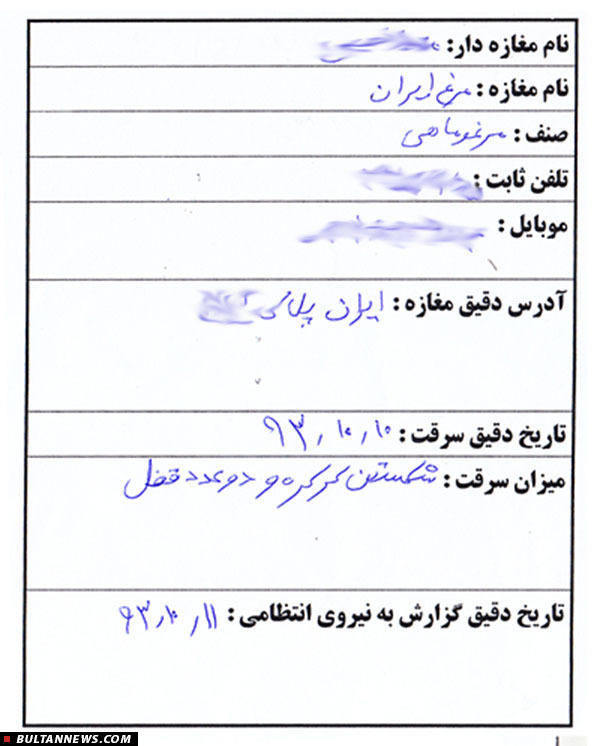 نام مغازه دار:
نام مغازه : مرغ ایران
صنف : مرغ و ماهی
تلفن ثابت :
موبایل :
آدرس دقیق مغازه : ایران پلاک
تاریخ دقیق سرقت : ۹۳٫۱۰٫۱۰
میزان سرقت : شکستن کرکره و دو عدد قفل
تاریخ دقیق گزارش به نیروی انتظامی : ۹۳٫۱۰٫۱۱
BULTANNEWS.COM